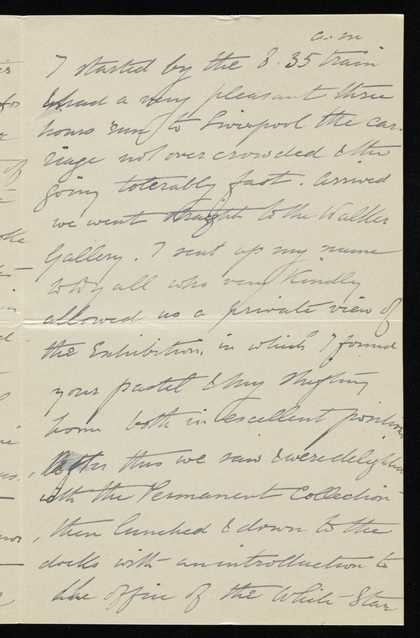 a.m
I started by the 8.35 train
& had a very pleasant three
hours run to Liverpool the car-
riage not over crowded & the
going tolerably fast. Arrived
we went straight to the Walker
Gallery. I sent up my name
to Dyall who very kindly
allowed us a private view of
the Exhibition, in which I found
your pastel & my
home both in excellent position
After this we saw & were delighted
with the Permanent Collection
then lunched & down to the
docks with an introduction to
the office of the White Star